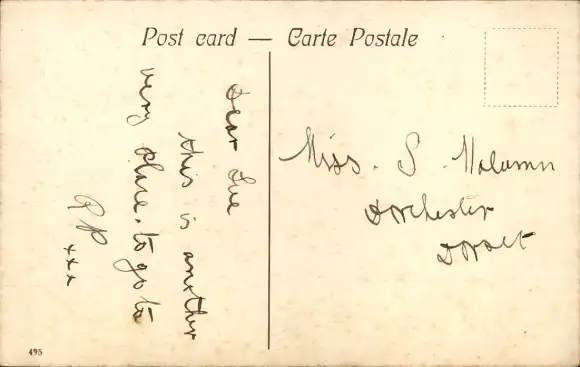 Post card — Carte Postale
Dear Sue
this is another
very place. to go to
R P
xxx
Miss. S.
Dorchester
Dorset
495